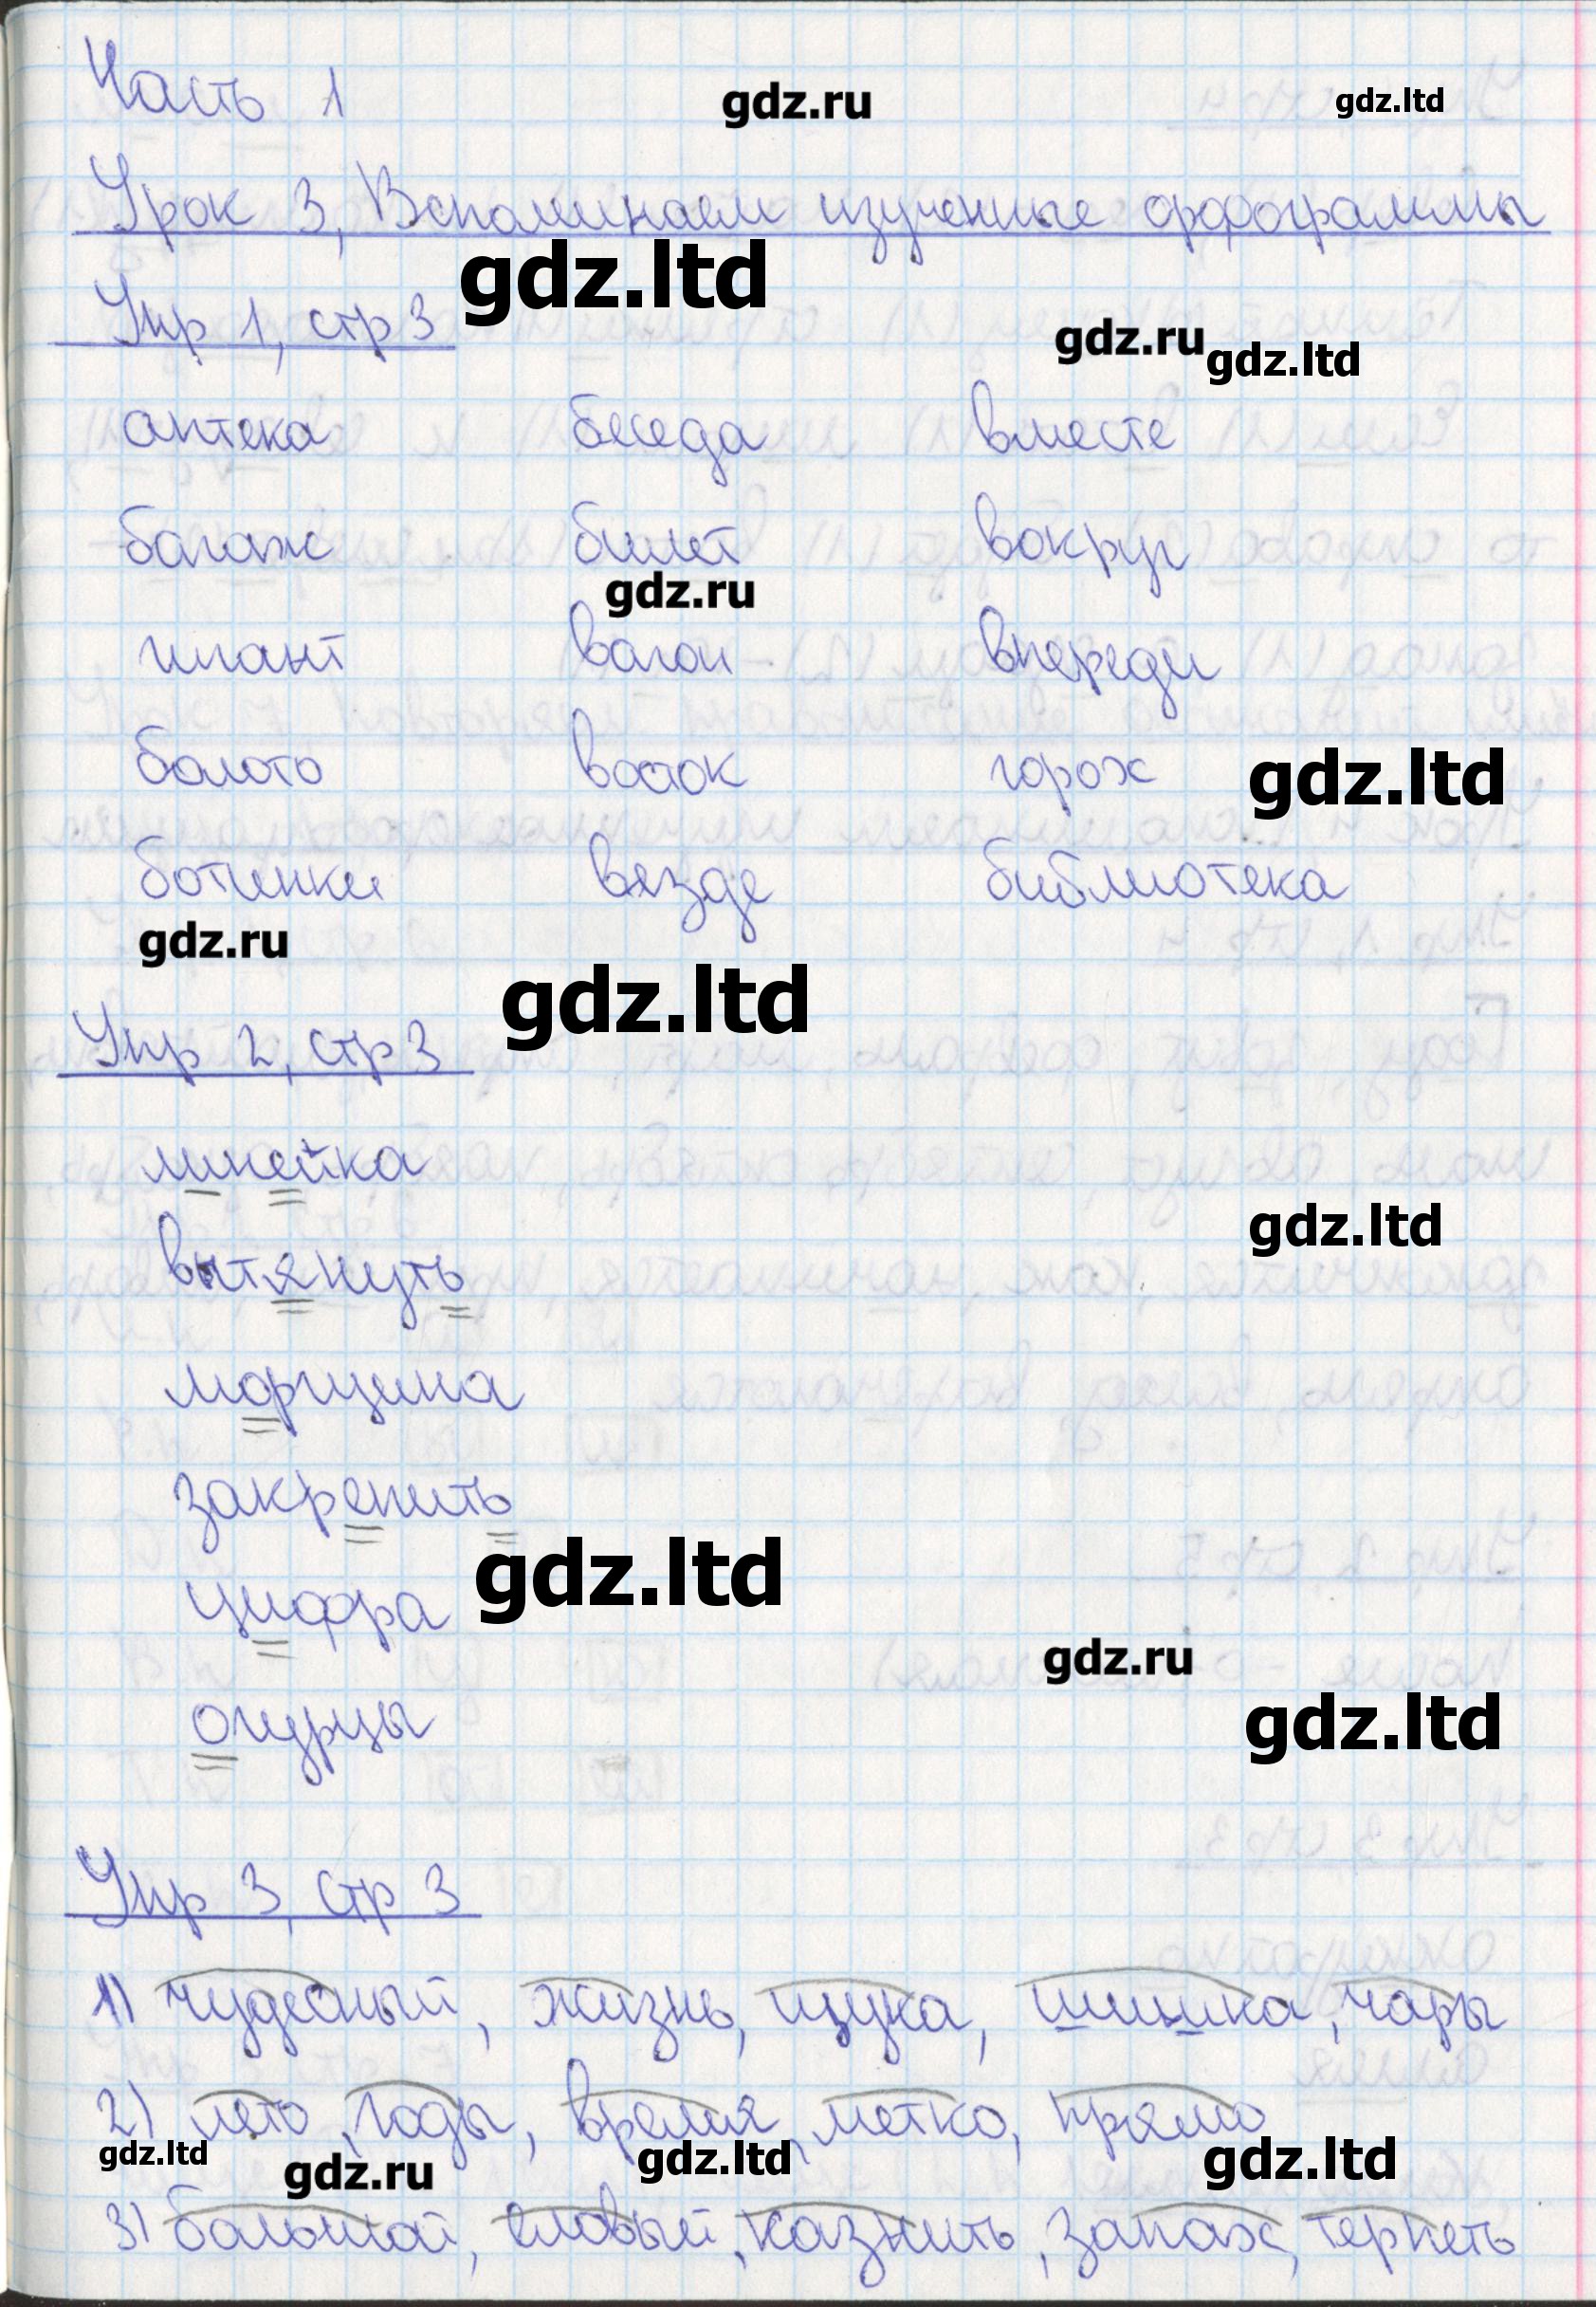 Часть 1
gdz.ru
gdz.ltd
Урок 3, Вспоминаем изученные орфограммы
gdz.ltd
Упр 1, стр 3
gdz.ru
gdz.ltd
аптека беседа вместе
багаж билет вокруг
gdz.ru
гигант вагон впереди
болото восток горох
gdz.ltd
ботинки везде библиотека
gdz.ru
gdz.ltd
Упр 2, стр 3
линейка
gdz.ltd
вытянуть
морщина
закрепить
gdz.ltd
цифра
gdz.ru
огурцы
gdz.ltd
Упр 3, стр 3
1) чудесный, жизнь, щука, шишка, чары
2) лето, годы, время, метко, прямо
gdz.ltd
gdz.ru
gdz.ltd
gdz.ltd
3) большой, еловый, казнить, запах, терпеть